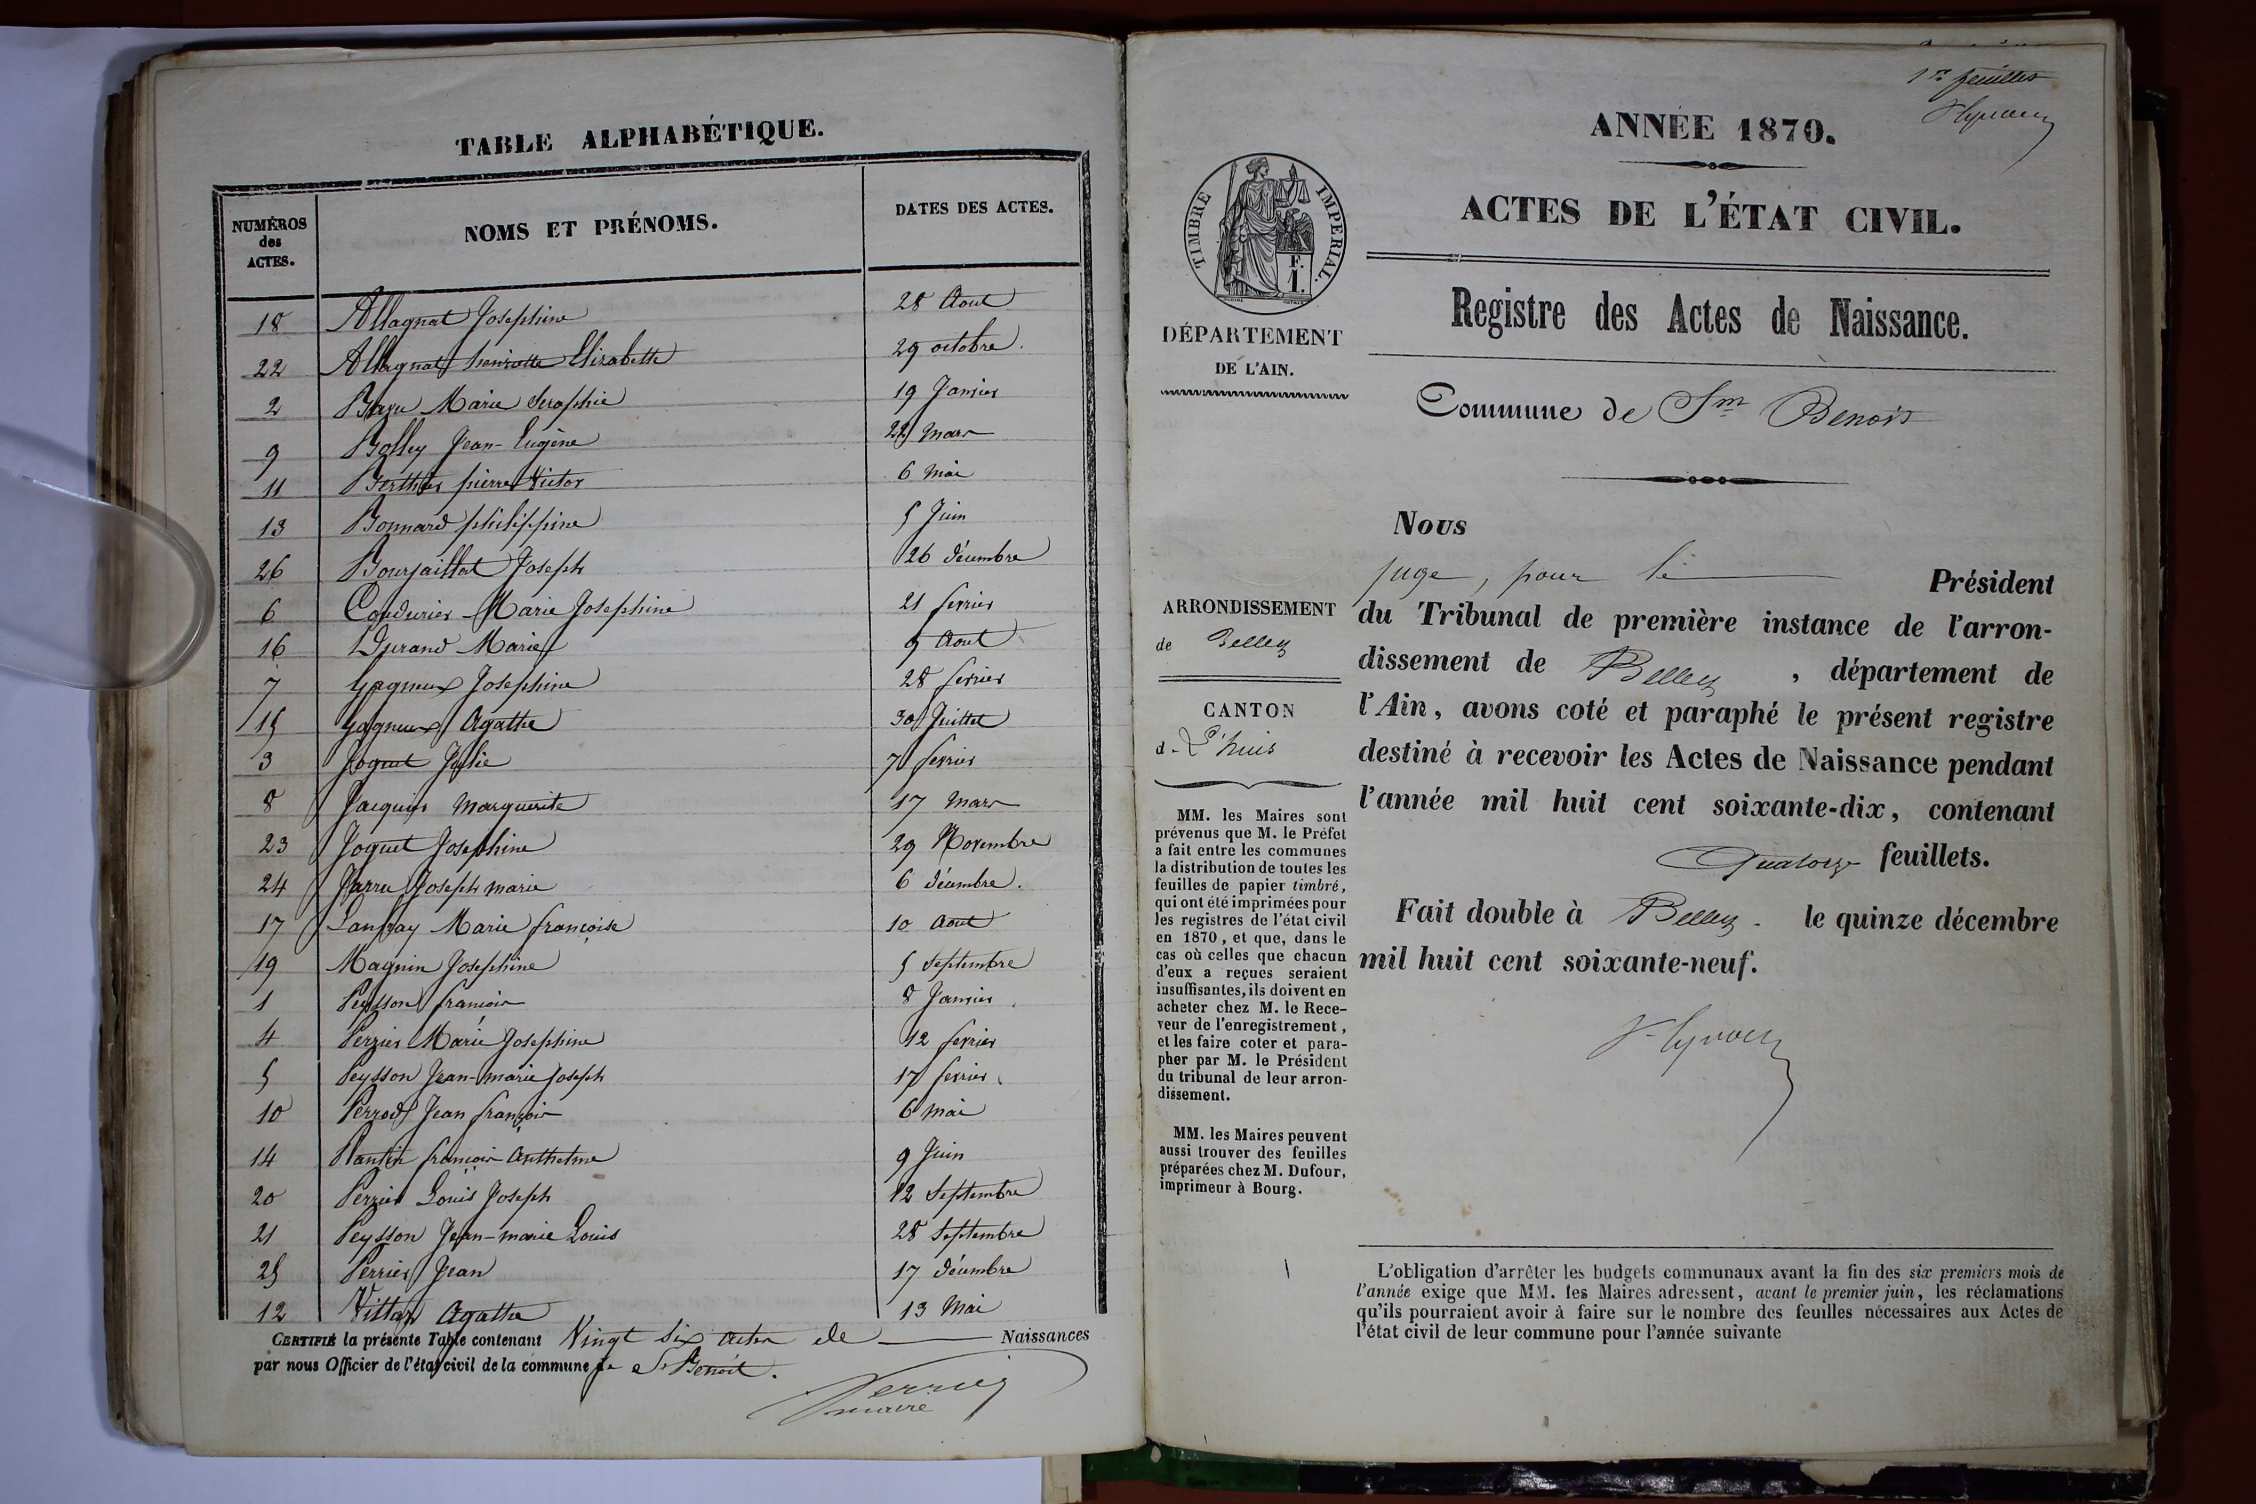 TABLE ALPHABÉTIQUE.
NUMÉROS des ACTES. NOMS ET PRÉNOMS. DATES DES ACTES.
18 Allagnat Josephine 28 Aout
22 Allagnat henriette Elizabeth 29 octobre.
2 Marie Seraphie 19 Janvier
9 Bolley Jean-Eugène 22 Mars
11 Berthet pierre Victor 6 Mai
13 Bonnard philippine 5 Juin
26 Bourjaillat Joseph 26 décembre
6 Coudurier Marie Josephine 21 fevrier
16 Durand Marie 9 Aout
7 Gagneux Josephine 28 fevrier
15 Gagneux Agathe 30 Juillet
3 Joguet Julie 7 fevrier
8 Jacquin Marguerite 17 Mars
23 Joguet Josephine 29 Novembre
24 Joseph marie 6 décembre.
17 Lanfray Marie françoise 10 Aout
19 Magnin Josephine 5 Septembre
1 Peysson françois 8 Janvier
4 Perrier Marie Josephine 12 fevrier
5 Peysson Jean-marie Joseph 17 fevrier
10 Perrod Jean françois 6 Mai
14 Plantin françois Anthelme 9 Juin
20 Perrier Louis Joseph 12 Septembre
21 Peysson Jean-marie Louis 28 Septembre
25 Perrier Jean 17 décembre
12 Vittoz Agathe 13 Mai
CERTIFIÉ la présente Table contenant Vingt six actes de Naissances
par nous Officier de l'état civil de la commune de St Benoit.
Perrier
maire
1er feuillet
ANNÉE 1870.
TIMBRE IMPERIAL.
F.
1.
ACTES DE L'ÉTAT CIVIL.
Registre des Actes de Naissance.
DÉPARTEMENT
DE L'AIN.
Commune de St Benoit
Nous
juge, pour le Président
du Tribunal de première instance de l'arron-
dissement de Belley, département de
l'Ain, avons coté et paraphé le présent registre
destiné à recevoir les Actes de Naissance pendant
l'année mil huit cent soixante-dix, contenant
Quatorze feuillets.
Fait double à Belley. le quinze décembre
mil huit cent soixante-neuf.
ARRONDISSEMENT
de Belley
CANTON
d L'huis
MM. les Maires sont
prévenus que M. le Préfet
a fait entre les communes
la distribution de toutes les
feuilles de papier timbré,
qui ont été imprimées pour
les registres de l'état civil
en 1870, et que, dans le
cas où celles que chacun
d'eux a reçues seraient
insuffisantes, ils doivent en
acheter chez M. le Rece-
veur de l'enregistrement,
et les faire coter et para-
pher par M. le Président
du tribunal de leur arron-
dissement.
MM. les Maires peuvent
aussi trouver des feuilles
préparées chez M. Dufour,
imprimeur à Bourg.
L'obligation d'arrêter les budgets communaux avant la fin des six premiers mois de
l'année exige que MM. les Maires adressent, avant le premier juin, les réclamations
qu'ils pourraient avoir à faire sur le nombre des feuilles nécessaires aux Actes de
l'état civil de leur commune pour l'année suivante